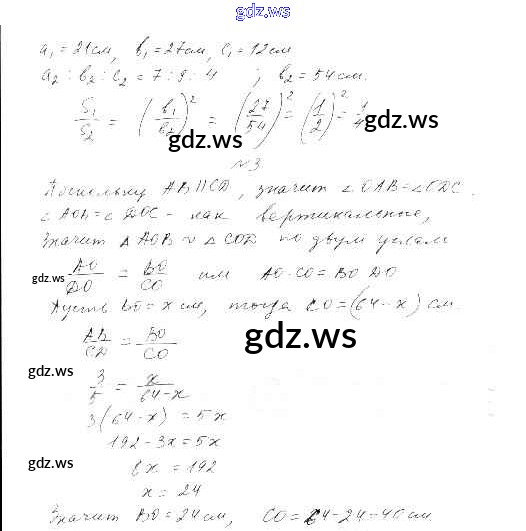 gdz.ws
a₁ = 21 см, b₁ = 27 см, c₁ = 12 см
a₂ : b₂ : c₂ = 7 : 9 : 4 ; b₂ = 54 см.
S₁/S₂ = (b₁/b₂)² = (27/54)² = (1/2)² = 1/4
gdz.ws
gdz.ws
№3
Поскольку AB || CD, значит ∠OAB = ∠CDC.
∠AOB = ∠DOC - как вертикальные,
Значит △AOB ∾ △COD по двум углам
gdz.ws
AO/DO = BO/CO или AO·CO = BO·DO
Пусть BO = x см, тогда CO = (64 - x) см.
gdz.ws
AB/CD = BO/CO
gdz.ws
3/5 = x/64-x
3(64 - x) = 5x
192 - 3x = 5x
gdz.ws
8x = 192
x = 24
gdz.ws
Значит BO = 24 см, CO = 64 - 24 = 40 см